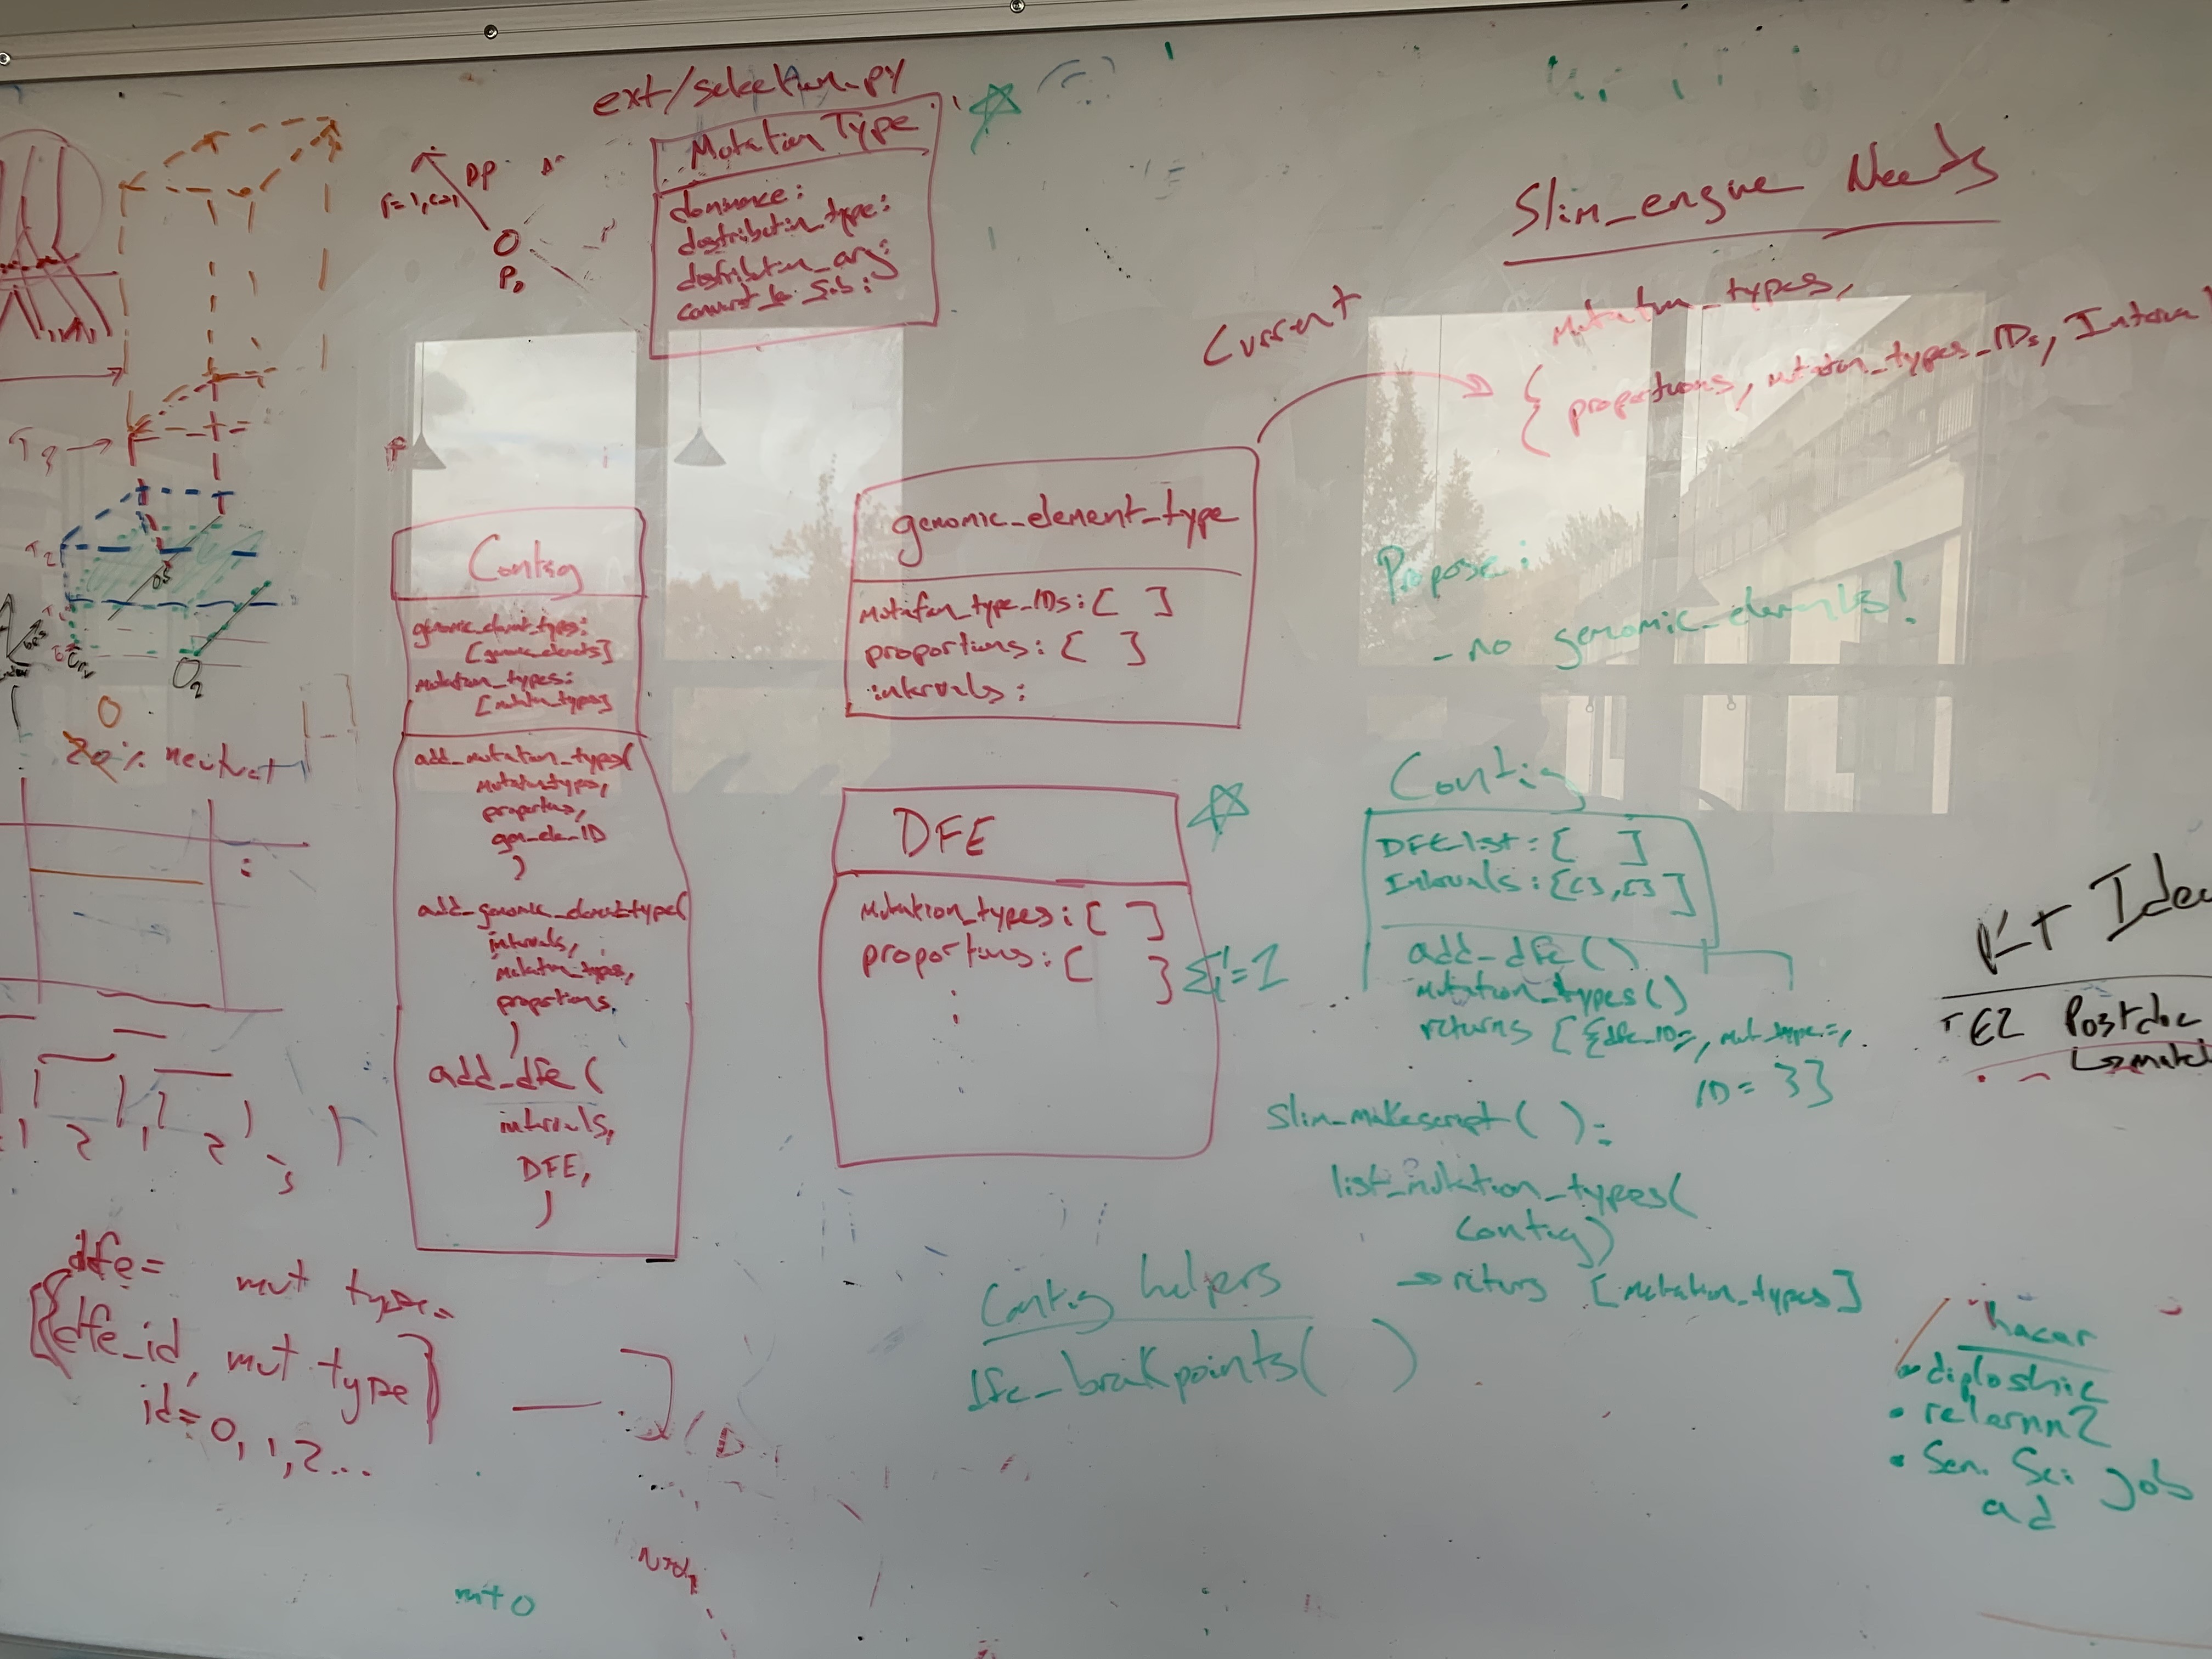 ext/selection.py
Mutation Type
dominance:
distribution_type:
distribution_arg:
convert_to_sub:
Slim_engine Needs
Current
Mutation_types,
{ proportions, mutation_types_IDs, Interval
genomic_element_type
Mutation_type_IDs: [ ]
proportions: [ ]
intervals:
Contig
genomic_element_types:
[genomic_elements]
Mutation_types:
[mutation_types]
add_mutation_types(
Mutation_types,
proportions,
gen_ele_ID
)
add_genomic_element_type(
intervals,
mutation_types,
proportions
)
add_dfe (
intervals,
DFE,
)
DFE
Mutation_types: [ ]
proportions: [ ] Σ=1
Propose:
- no genomic_elements!
Contig
DFE list: [ ]
Intervals: [[],[]]
add_dfe()
mutation_types()
returns [{dfe_ID=, mut_type=,
ID= }]
Slim_makescript( ):
list_mutation_types(
Contig)
→ returns [mutation_types]
Contig helpers
dfe_breakpoints( )
T3
T2
O2
P0
20% neutral
dfe= mut type=
[{dfe_id, mut.type}
id=0,1,2...
mto
Kt Idea
Postdoc
hacer
• diploshic
• relernn2
• Sen. Sci job
ad